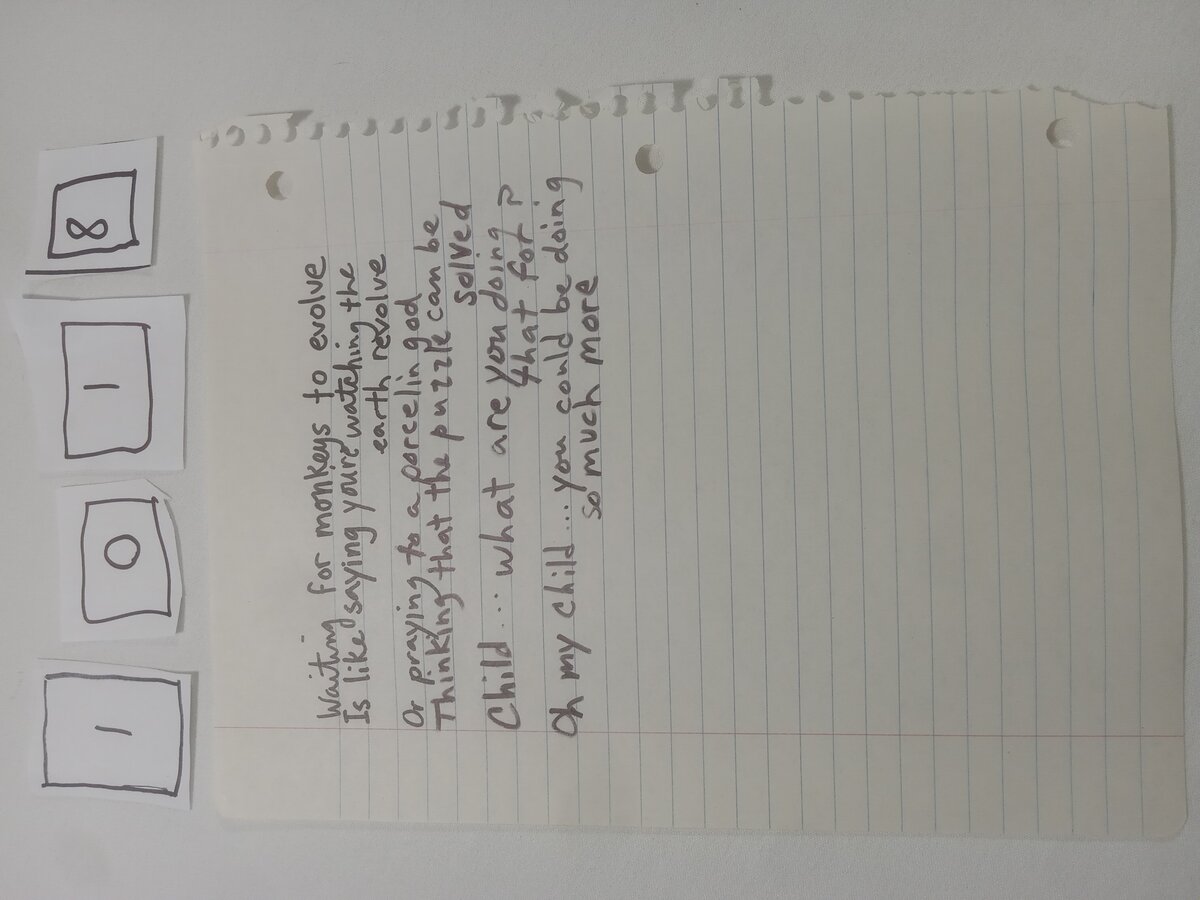 1 0 1 8
Waiting for monkeys to evolve
Is like saying you're watching the
earth revolve
Or praying to a porcelin god
Thinking that the puzzle can be
solved
Child... what are you doing
4hat for?
Oh my child... you could be doing
so much more